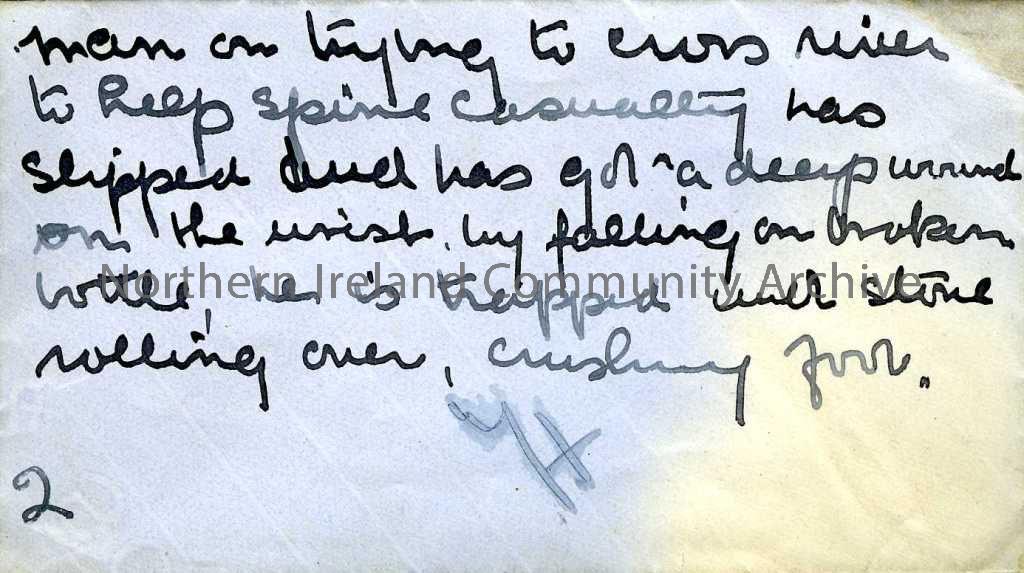 man on trying to cross river
to help spine casualty has
slipped and has got a deep wound
on the wrist, by falling on broken
Northern Ireland Community Archive
bottle, he is trapped with stone
rolling over, crushing foot.
2